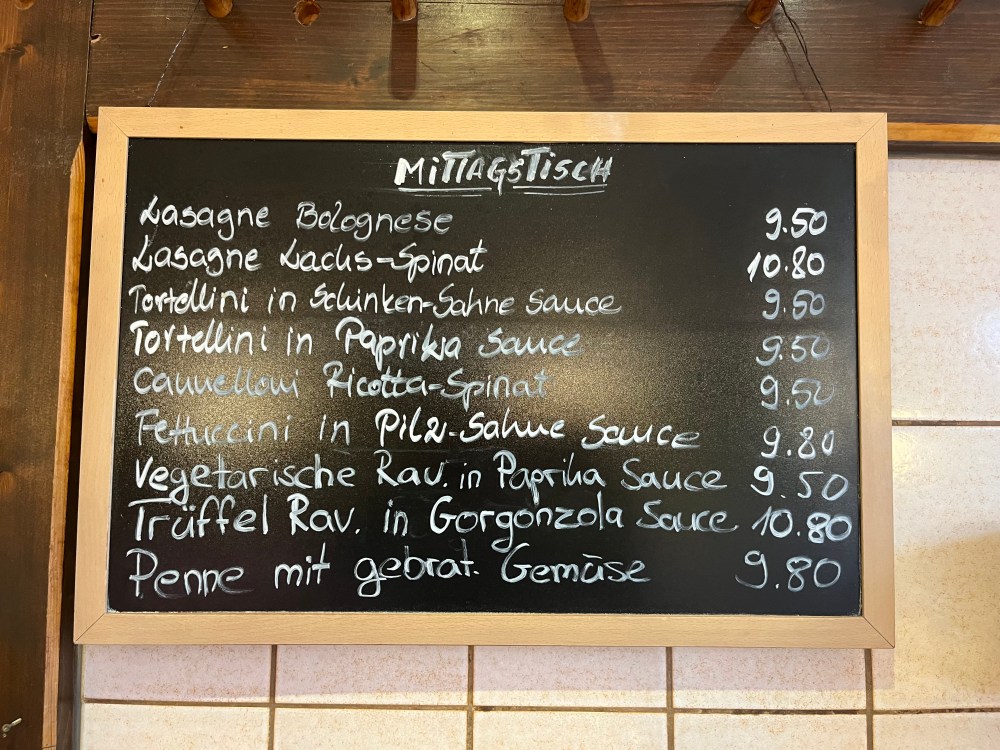 MiTTAGSTiSCH
Lasagne Bolognese 9.50
Lasagne Lachs-Spinat 10.80
Tortellini in Schinken-Sahne Sauce 9.50
Tortellini in Paprika Sauce 9.50
Cannelloni Ricotta-Spinat 9.50
Fettuccini in Pilz-Sahne Sauce 9.80
Vegetarische Rav. in Paprika Sauce 9.50
Trüffel Rav. in Gorgonzola Sauce 10.80
Penne mit gebrat. Gemüse 9.80